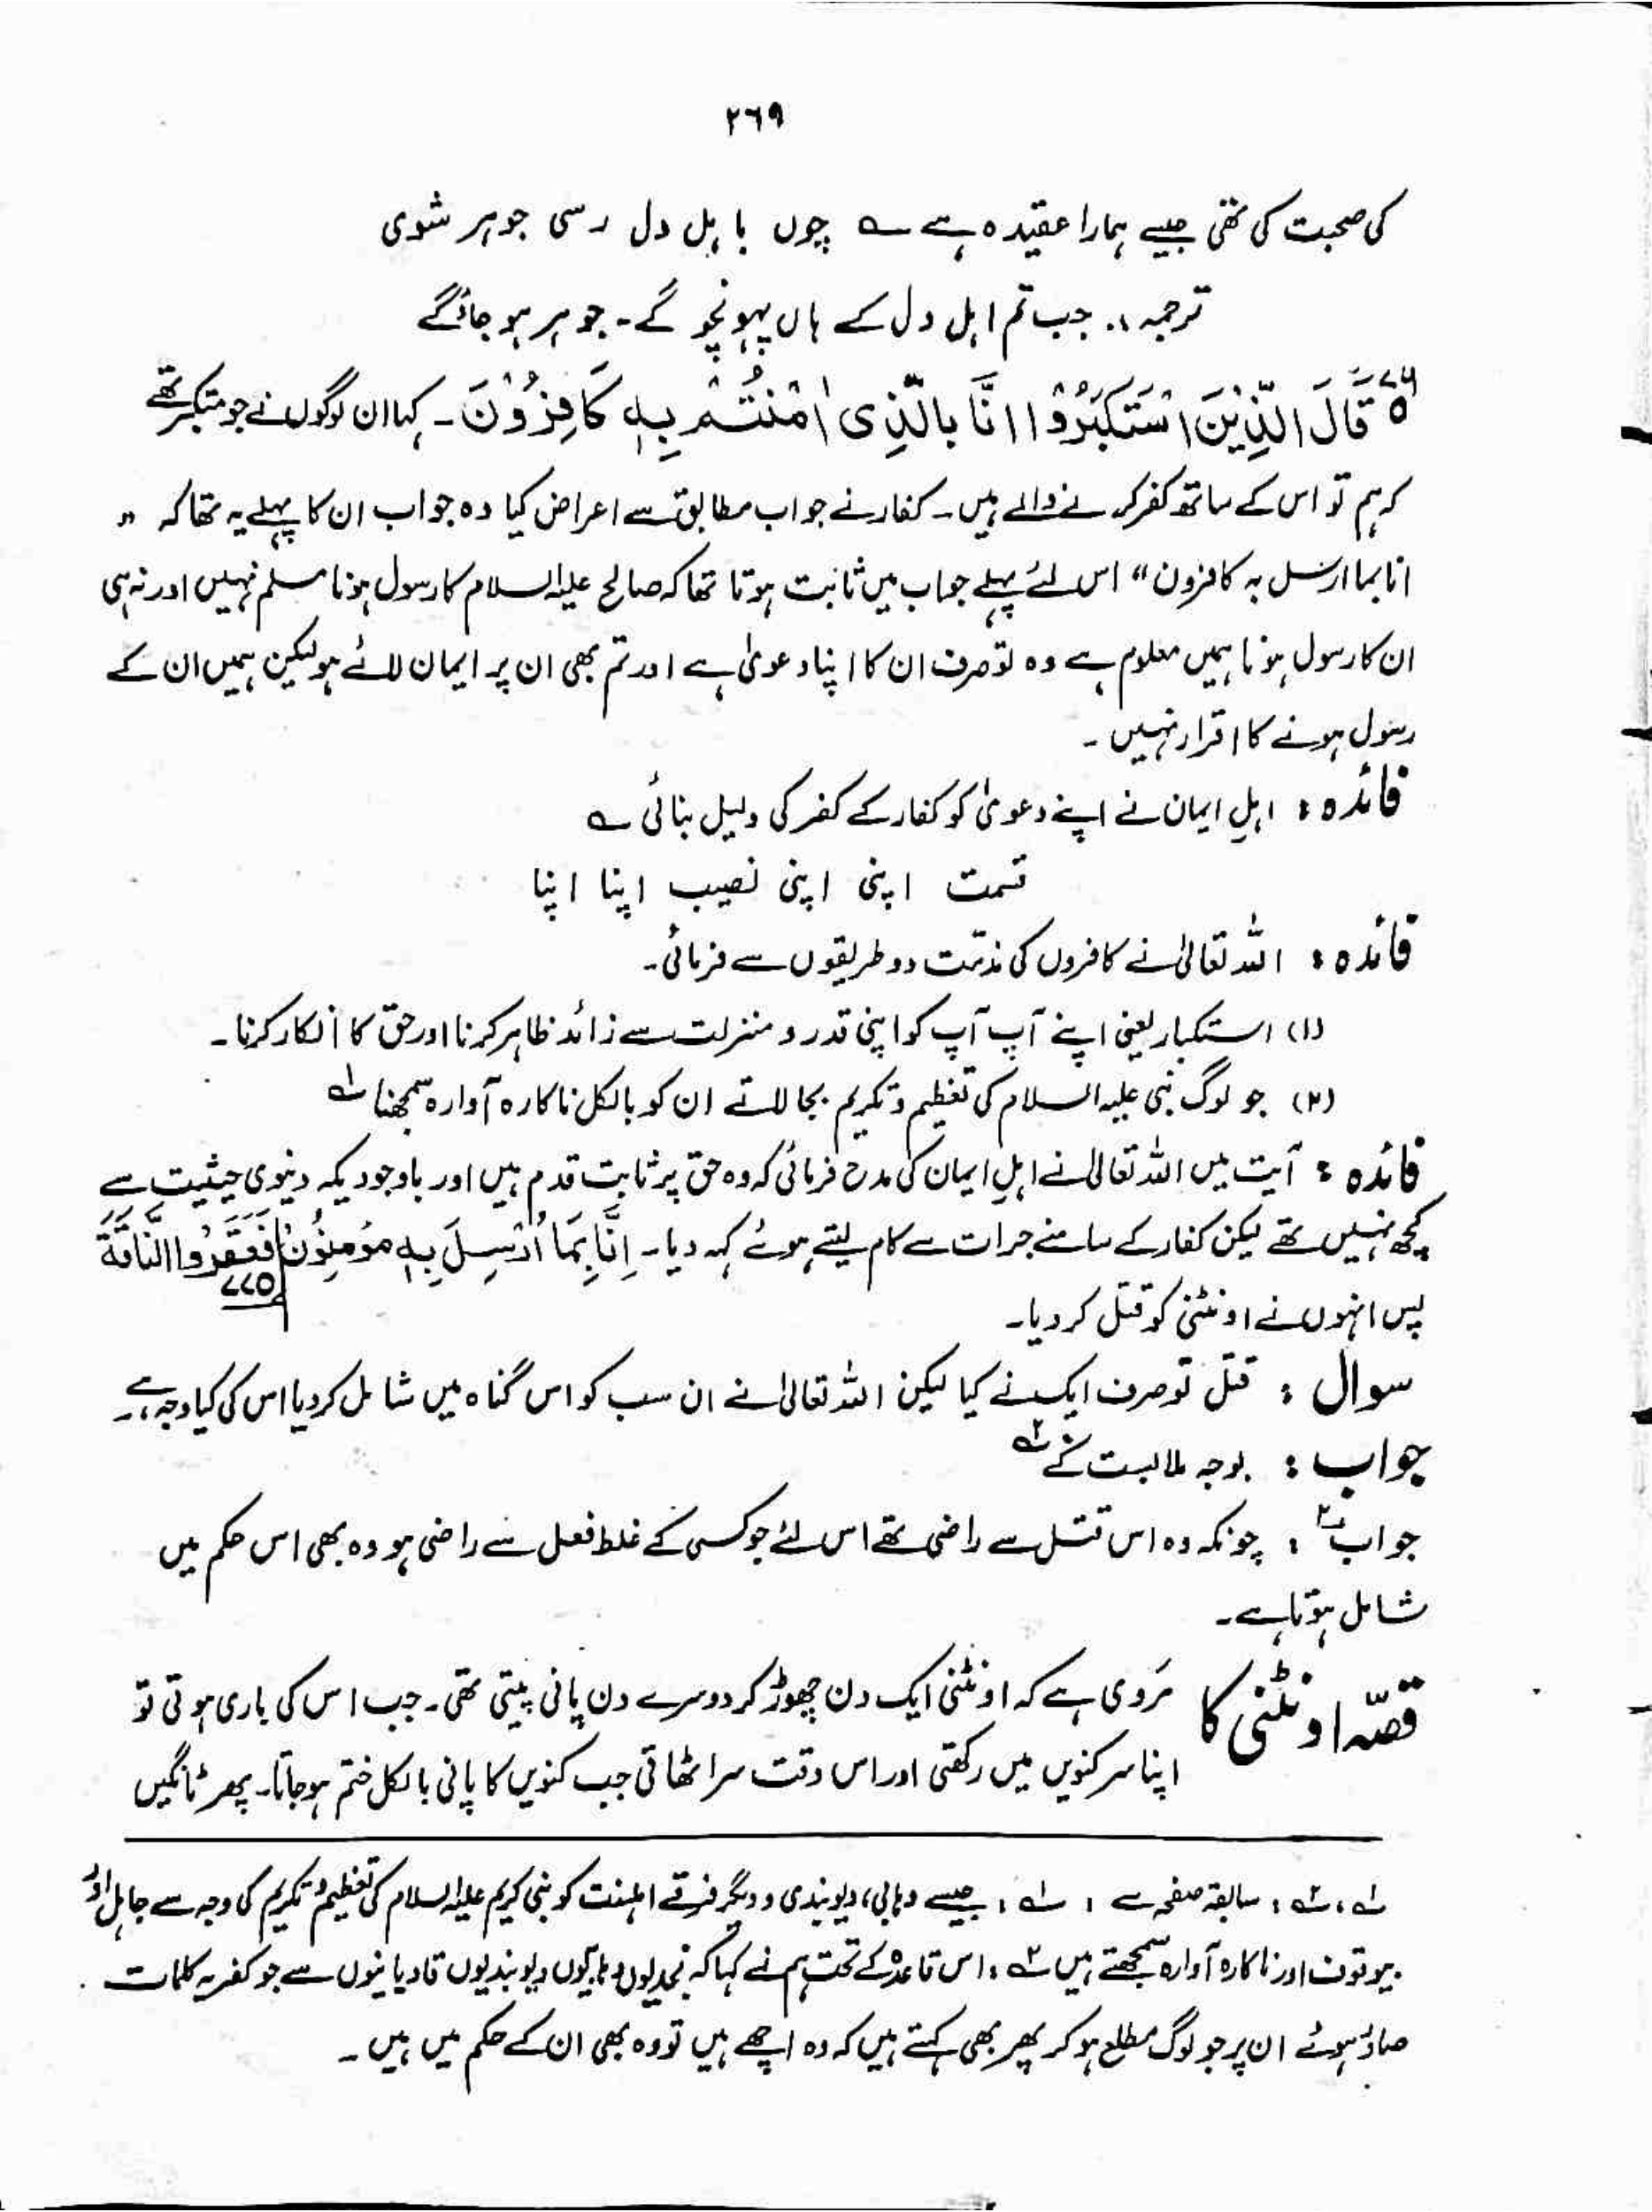 ۲۶۹
کی صحبت کی تھی جیسے ہمارا عقیدہ ہے ؎ چوں باہل دل رسی جوہر شوی
ترجمہ: جب تم اہل دل کے ہاں پہونچو گے۔ جوہر ہو جاؤ گے
۷۶ قَالَ الَّذِیْنَ اسْتَکْبَرُوْا اِنَّا بِالَّذِی اٰمَنْتُمْ بِہٖ کَافِرُوْنَ۔ کہا ان لوگوں نے جو متکبر تھے
کہ ہم تو اس کے ساتھ کفر کرنے والے ہیں۔ کفار نے جواب مطابق سے اعراض کیا وہ جواب ان کا پہلے یہ تھا کہ "
انا بما ارسل بہ کافرون" اس لئے پہلے جواب میں ثابت ہوتا تھا کہ صالح علیہ السلام کا رسول ہونا مسلم نہیں اور نہ ہی
ان کا رسول ہونا ہمیں معلوم ہے وہ تو صرف ان کا اپنا دعویٰ ہے اور تم بھی ان پر ایمان لائے ہو لیکن ہمیں ان کے
رسول ہونے کا اقرار نہیں ۔
فائدہ : اہلِ ایمان نے اپنے دعویٰ کو کفار کے کفر کی دلیل بنائی ؎
قسمت اپنی اپنی نصیب اپنا اپنا
فائدہ : اللہ تعالیٰ نے کافروں کی مذمّت دو طریقوں سے فرمائی۔
(۱) استکبار یعنی اپنے آپ آپ کو اپنی قدر و منزلت سے زائد ظاہر کرنا اور حق کا انکار کرنا۔
(۲) جو لوگ نبی علیہ السلام کی تعظیم و تکریم بجا لاتے ان کو بالکل ناکارہ آوارہ سمجھنا ؎۱
فائدہ : آیت میں اللہ تعالیٰ نے اہلِ ایمان کی مدح فرمائی کہ وہ حق پر ثابت قدم ہیں اور باوجودیکہ دنیوی حیثیت سے
کچھ نہیں تھے لیکن کفار کے سامنے جرات سے کام لیتے ہوئے کہہ دیا۔ اِنَّا بِمَا اُرْسِلَ بِہٖ مُوْمِنُوْنَ فَعَقَرُوا النَّاقَۃَ ۷۷
پس انہوں نے اونٹنی کو قتل کر دیا۔
سوال : قتل تو صرف ایک نے کیا لیکن اللہ تعالیٰ نے ان سب کو اس گناہ میں شامل کر دیا اس کی کیا وجہ ہے۔
جواب : بوجہ ملابست کے ؎۲
جواب ۲ : چونکہ وہ اس قتل سے راضی تھے اس لئے جو کسی کے غلط فعل سے راضی ہو وہ بھی اس حکم میں
شامل ہوتا ہے۔
قصّہ اونٹنی کا مَروی ہے کہ اونٹنی ایک دن چھوڑ کر دوسرے دن پانی پیتی تھی۔ جب اس کی باری ہوتی تو
اپنا سر کنویں میں رکھتی اور اس وقت سر اٹھاتی جب کنویں کا پانی بالکل ختم ہو جاتا۔ پھر ٹانگیں
سابقہ صفحہ سے ، ؎۱ ، جیسے وہابی، دیوبندی و دیگر فرقے اہلسنت کو نبی کریم علیہ السلام کی تعظیم و تکریم کی وجہ سے جاہل اور
بیوقوف اور ناکارہ آوارہ سمجھتے ہیں ؎۲ ، اس قاعدہ کے تحت ہم نے کہا کہ نجدیوں وہابیوں دیوبندیوں قادیانیوں سے جو کفریہ کلمات
صادر ہوئے ان پر جو لوگ مطلع ہو کر پھر بھی کہتے ہیں کہ وہ اچھے ہیں تو وہ بھی ان کے حکم میں ہیں ۔